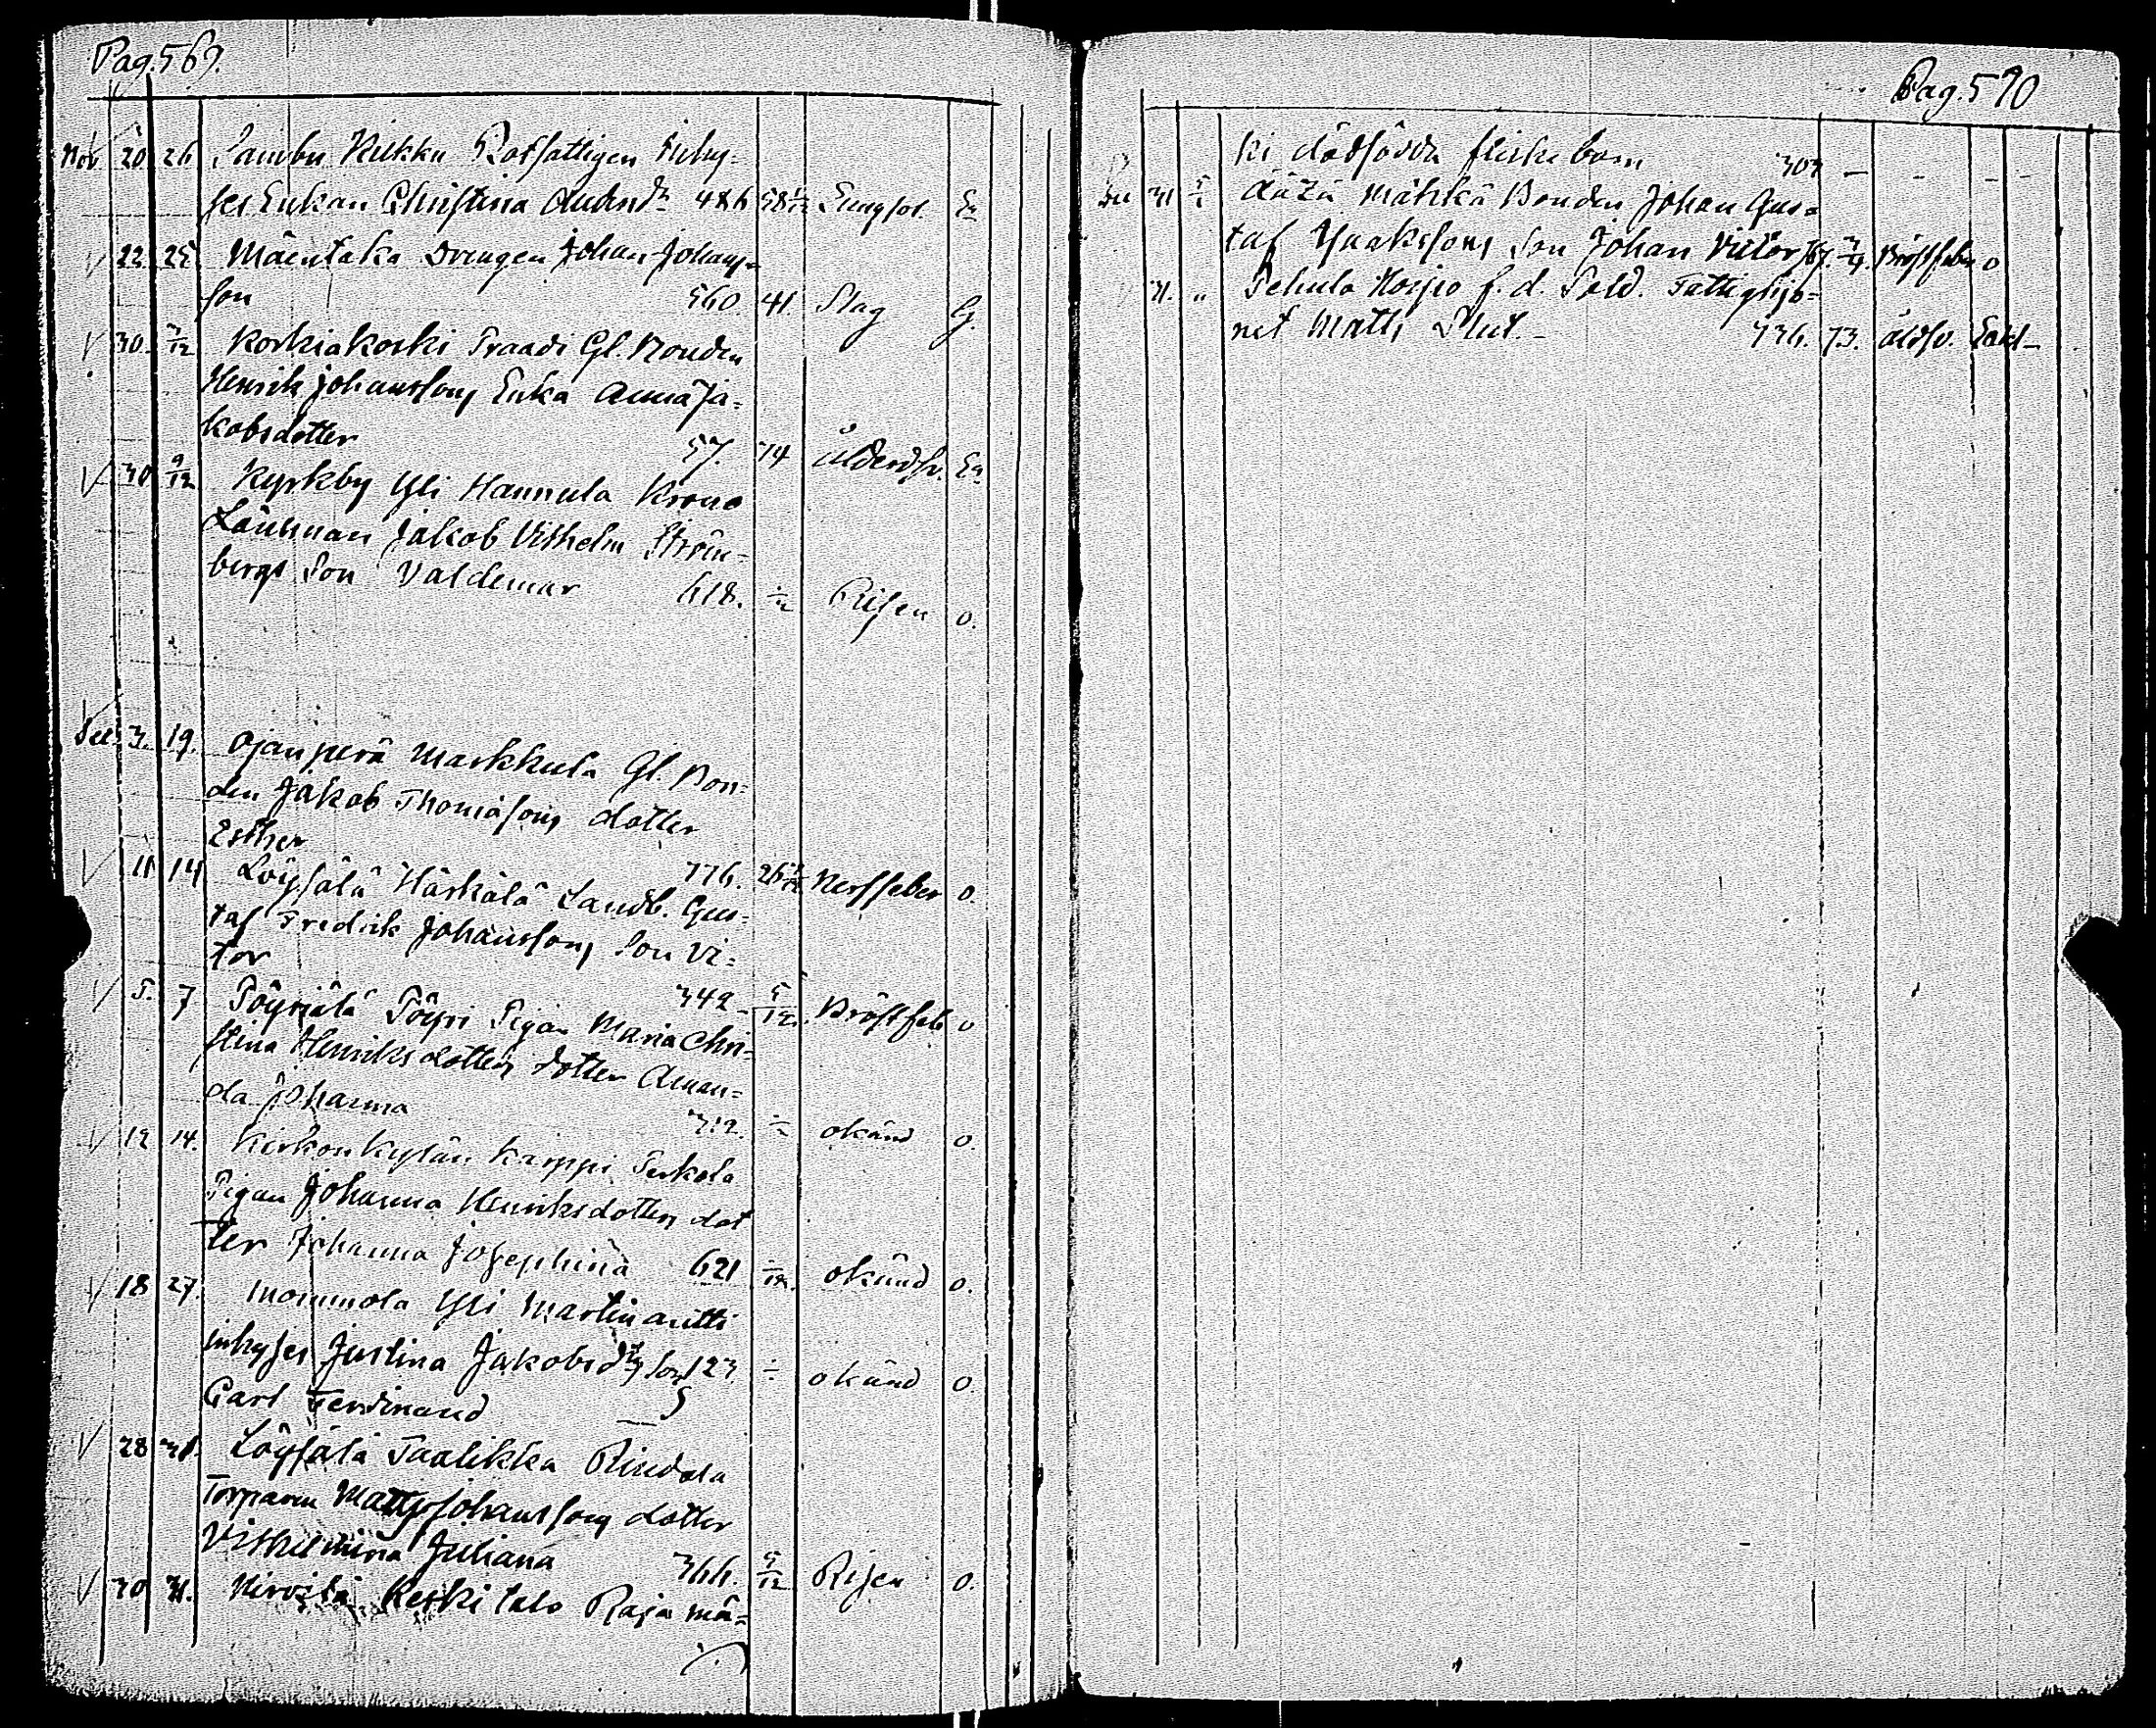 Pag. 569.
Nov 20 26 Rotfattigen Inhy=
ses Enkan Christina 486 58 Lungsot. En
22 25 Mäentaka Drengen Johan Johans=
son 560. 41. Slag G.
30 2/12 Korkiakoski Praadi Gl. Bonden
Henrik Johanssons Enka Anna Ja=
kobsdotter 57. 74 ålderdsv. En
30 9/12 Kyrkby Yli Hannula Krono
Länsman Jakob Vilhelm Ström=
bergs Son Valdemar 618. Risen o.
Dec. 3. 19. Ojanperä Markkula Gl. Bon=
den Jakob Thomassons dotter
Esther 776. 26 Nerffeber o.
11 14 Löysälä Härkälä Landb. Gus=
taf Fredrik Johanssons Son Vi=
tor 342 5/12 Bröstfeb o
5. 7 Pöyriälä Pöyri Pigan Maria Chri=
stina Henriksdotters dotter Aman=
da Johanna 312. okänd o.
12 14. Kirkonkylän Karppi Perkola
Pigan Johanna Henriksdotters dot
ter Johanna Josephina 621 okänd o.
18 27. Mommola Yli Martin antti
inhyses Justina Jakobsdrs Son 123 okänd o.
Carl Ferdinand
28 31. Löysälä Taalikka Rindala
Torparen Matts Johanssons dotter
Vilhelmina Juliana 366. 5/12 Risen o.
30 31. Hirvilä Keskitalo Rajamä=
Pag. 570
ki dödfödda flickebarn 307 — - - -
Dec 31 Mähkä Bonden Johan Gus=
taf Isakssons Son Johan Victor Bröstfeber o
31. " f. d. Sold. Fattighjo=
net Matts 736. 73. åldsv. Enkl—